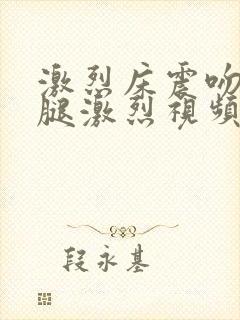 激烈床震吻
腿激烈視頻
段永基